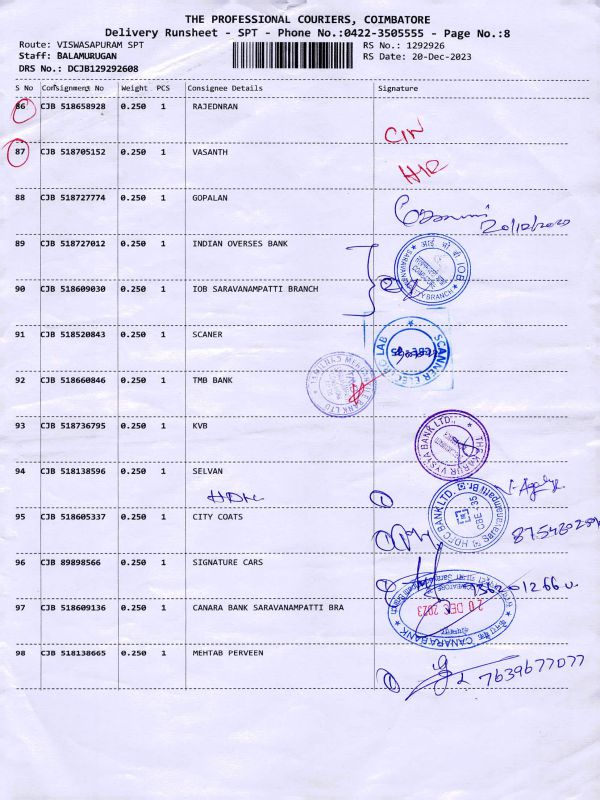 THE PROFESSIONAL COURIERS, COIMBATORE
Delivery Runsheet - SPT - Phone No.:0422-3505555 - Page No.:8
Route: VISWASAPURAM SPT
RS No.: 1292926
Staff: BALAMURUGAN
RS Date: 20-Dec-2023
DRS No.: DCJB129292608
S No Consignment No Weight PCS Consignee Details Signature
86 CJB 518658928 0.250 1 RAJEDNRAN
87 CJB 518705152 0.250 1 VASANTH
88 CJB 518727774 0.250 1 GOPALAN
89 CJB 518727012 0.250 1 INDIAN OVERSES BANK
90 CJB 518609030 0.250 1 IOB SARAVANAMPATTI BRANCH
91 CJB 518520843 0.250 1 SCANER
SCANNER ELECTRO LAB
92 CJB 518660846 0.250 1 TMB BANK
93 CJB 518736795 0.250 1 KVB
THE KARUR VYSYA BANK LTD.
94 CJB 518138596 0.250 1 SELVAN
HDFC BANK LTD.
95 CJB 518605337 0.250 1 CITY COATS
96 CJB 89898566 0.250 1 SIGNATURE CARS
97 CJB 518609136 0.250 1 CANARA BANK SARAVANAMPATTI BRA
20 DEC 2023
CANARA BANK
98 CJB 518138665 0.250 1 MEHTAB PERVEEN
7639677077